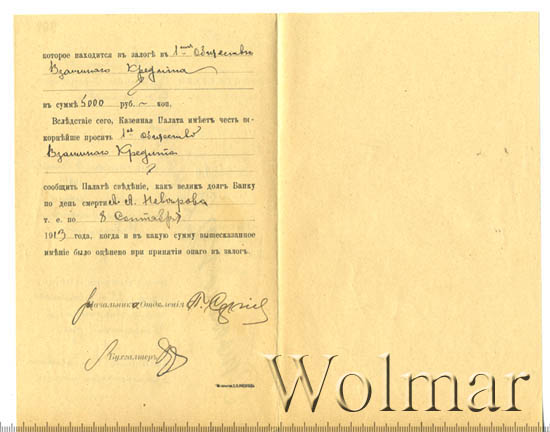 которое находится въ залогѣ въ 1омъ Обществѣ
Взаимнаго Кредита
въ суммѣ 5000 руб. ~ коп.
Вслѣдствіе сего, Казенная Палата имѣетъ честь по-
корнѣйше просить 1ое Общество
Взаимнаго Кредита
сообщить Палатѣ свѣдѣніе, какъ великъ долгъ Банку
по день смерти А. А. Неварова
т. е. по 8 Сентября
1913 года, когда и въ какую сумму вышесказанное
имѣніе было оцѣнено при принятіи онаго въ залогъ.
Начальника Отдѣленія
Бухгалтеръ
Wolmar